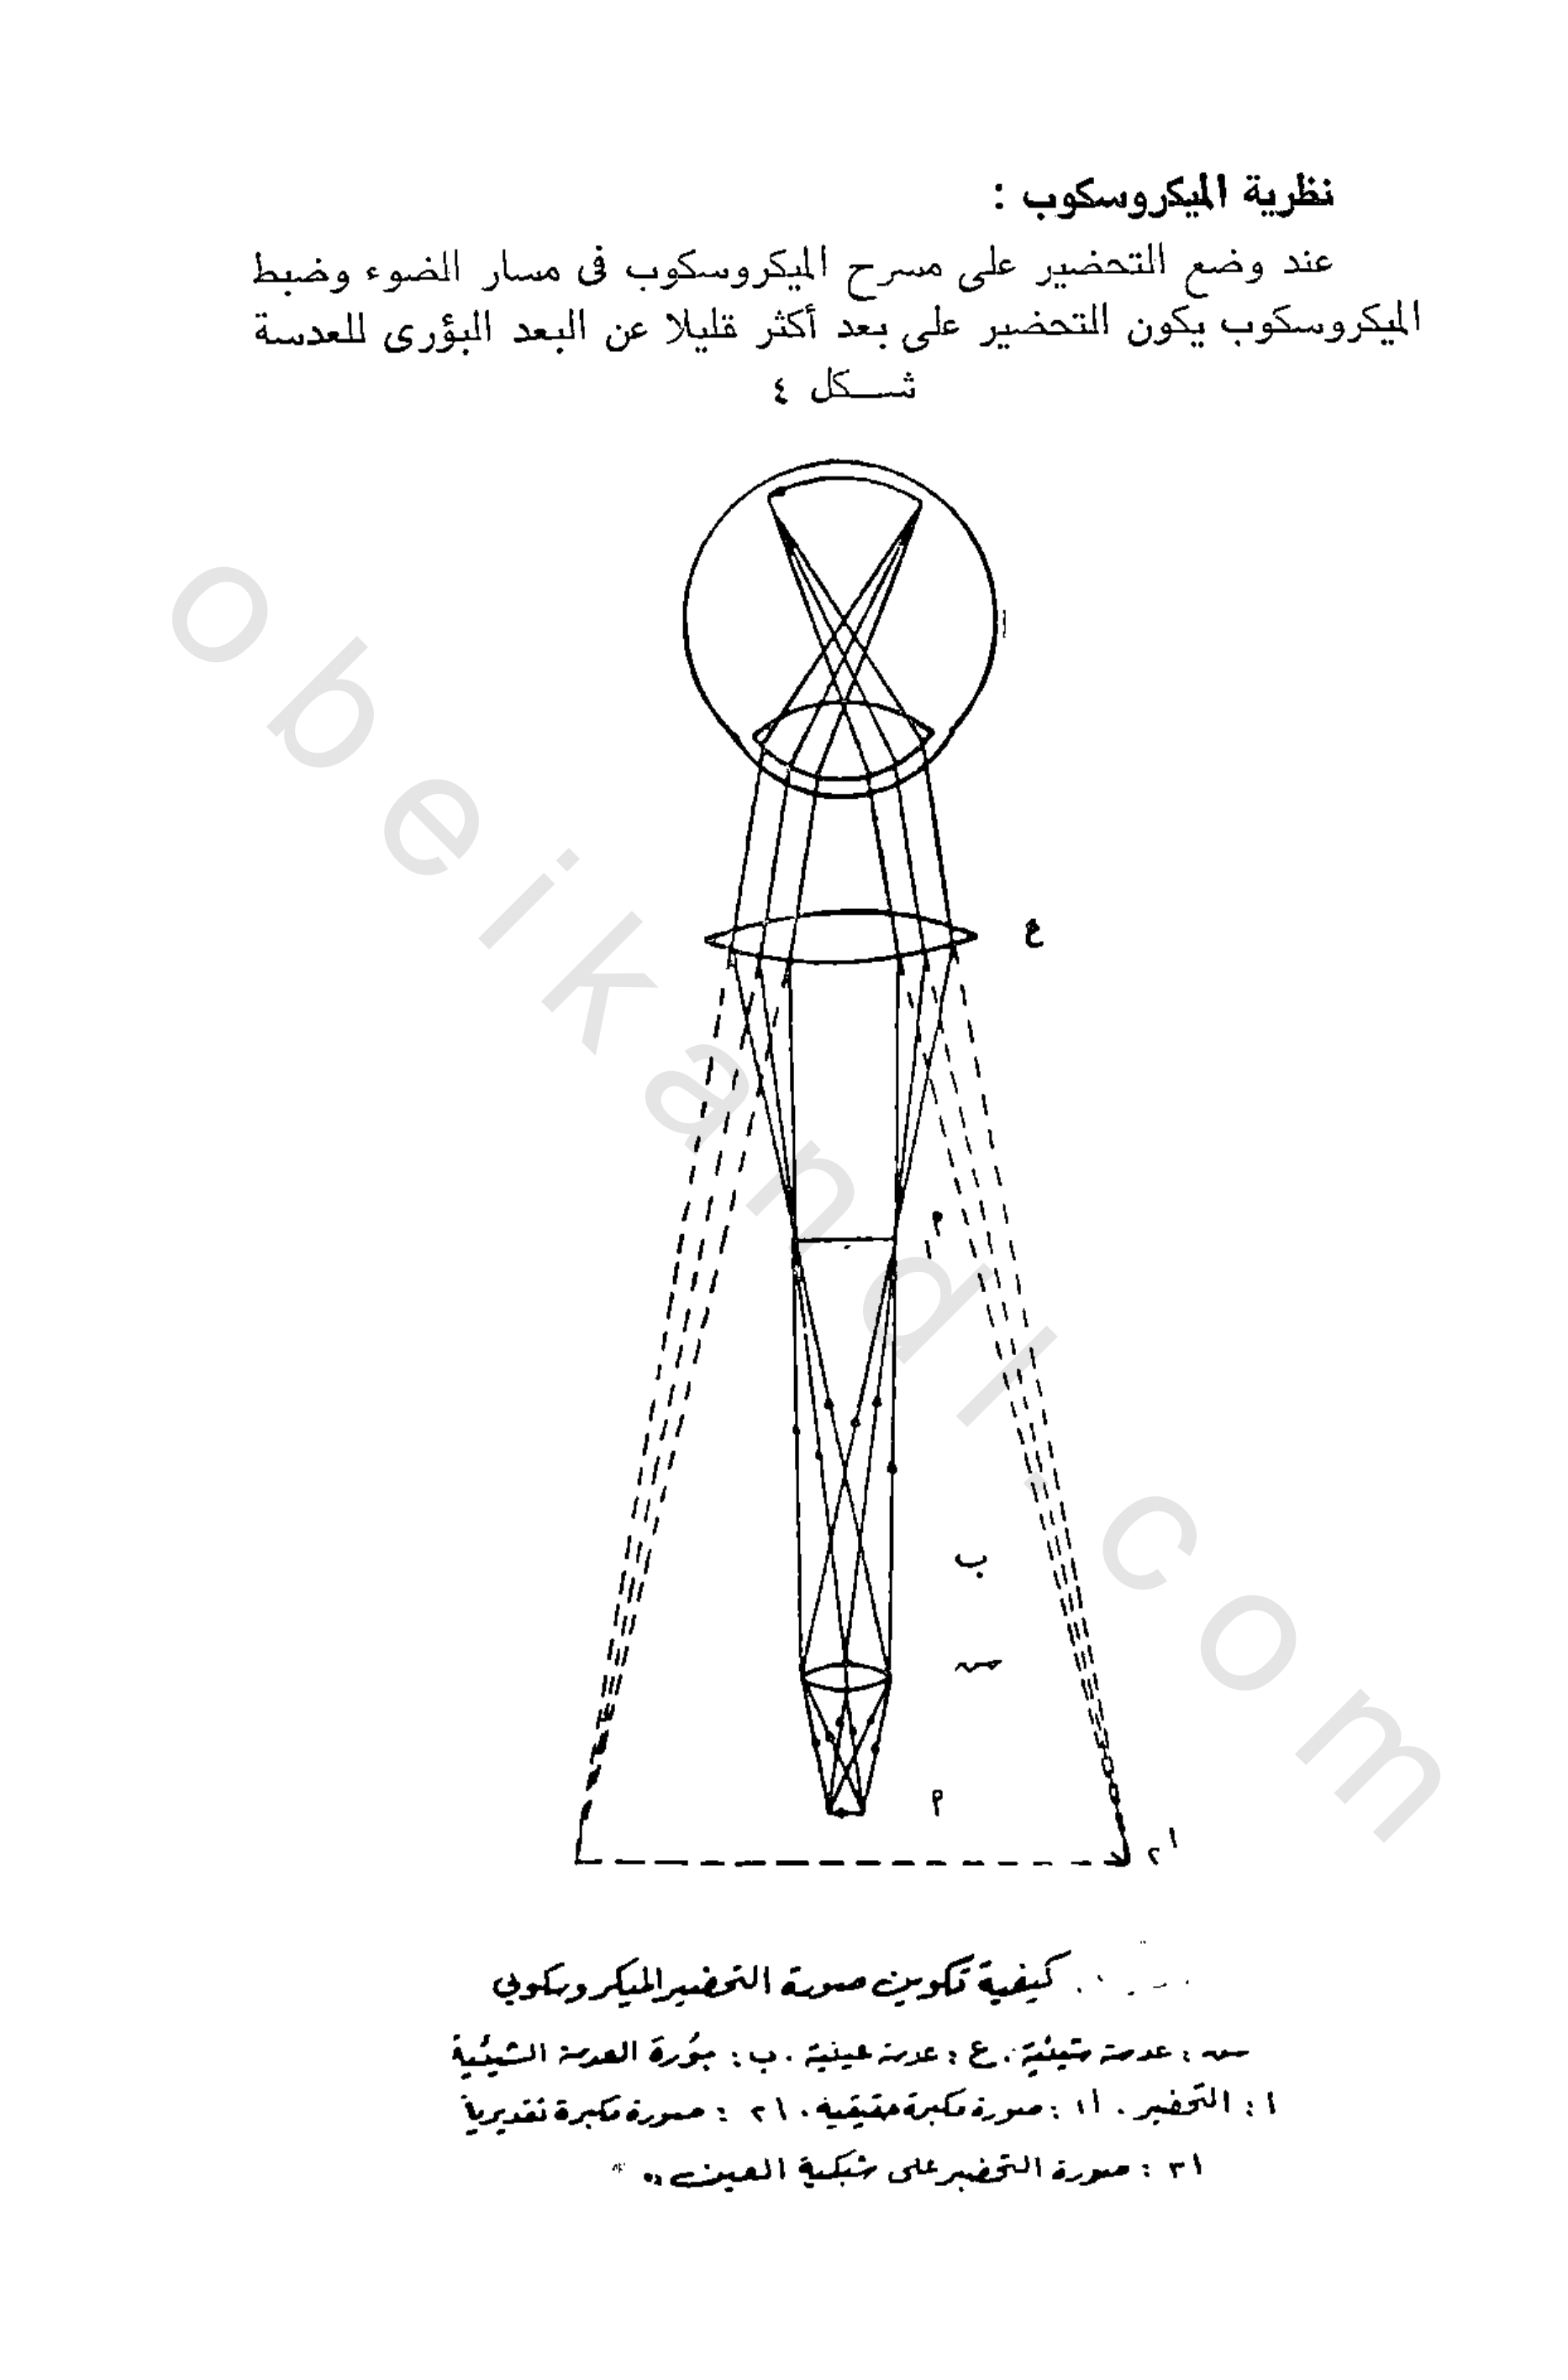 نظرية الميكروسكوب :
عند وضع التحضير على مسرح الميكروسكوب فى مسار الضوء وضبط
الميكروسكوب يكون التحضير على بعد أكثر قليلا عن البعد البؤرى للعدسة
شكل ٤
ع
م
ب
س
م
ا٢
كيفية تكوين صورة التحضير الميكروسكوبي
س : عدسة شيئية . ع : عدسة عينية . ب : بؤرة العدسة الشيئية
ا : التحضير . ا١ : صورة مكبرة حقيقية . ا٢ : صورة مكبرة تقديرية
ا٣ : صورة التحضير على شبكية العين
obeikandl.com